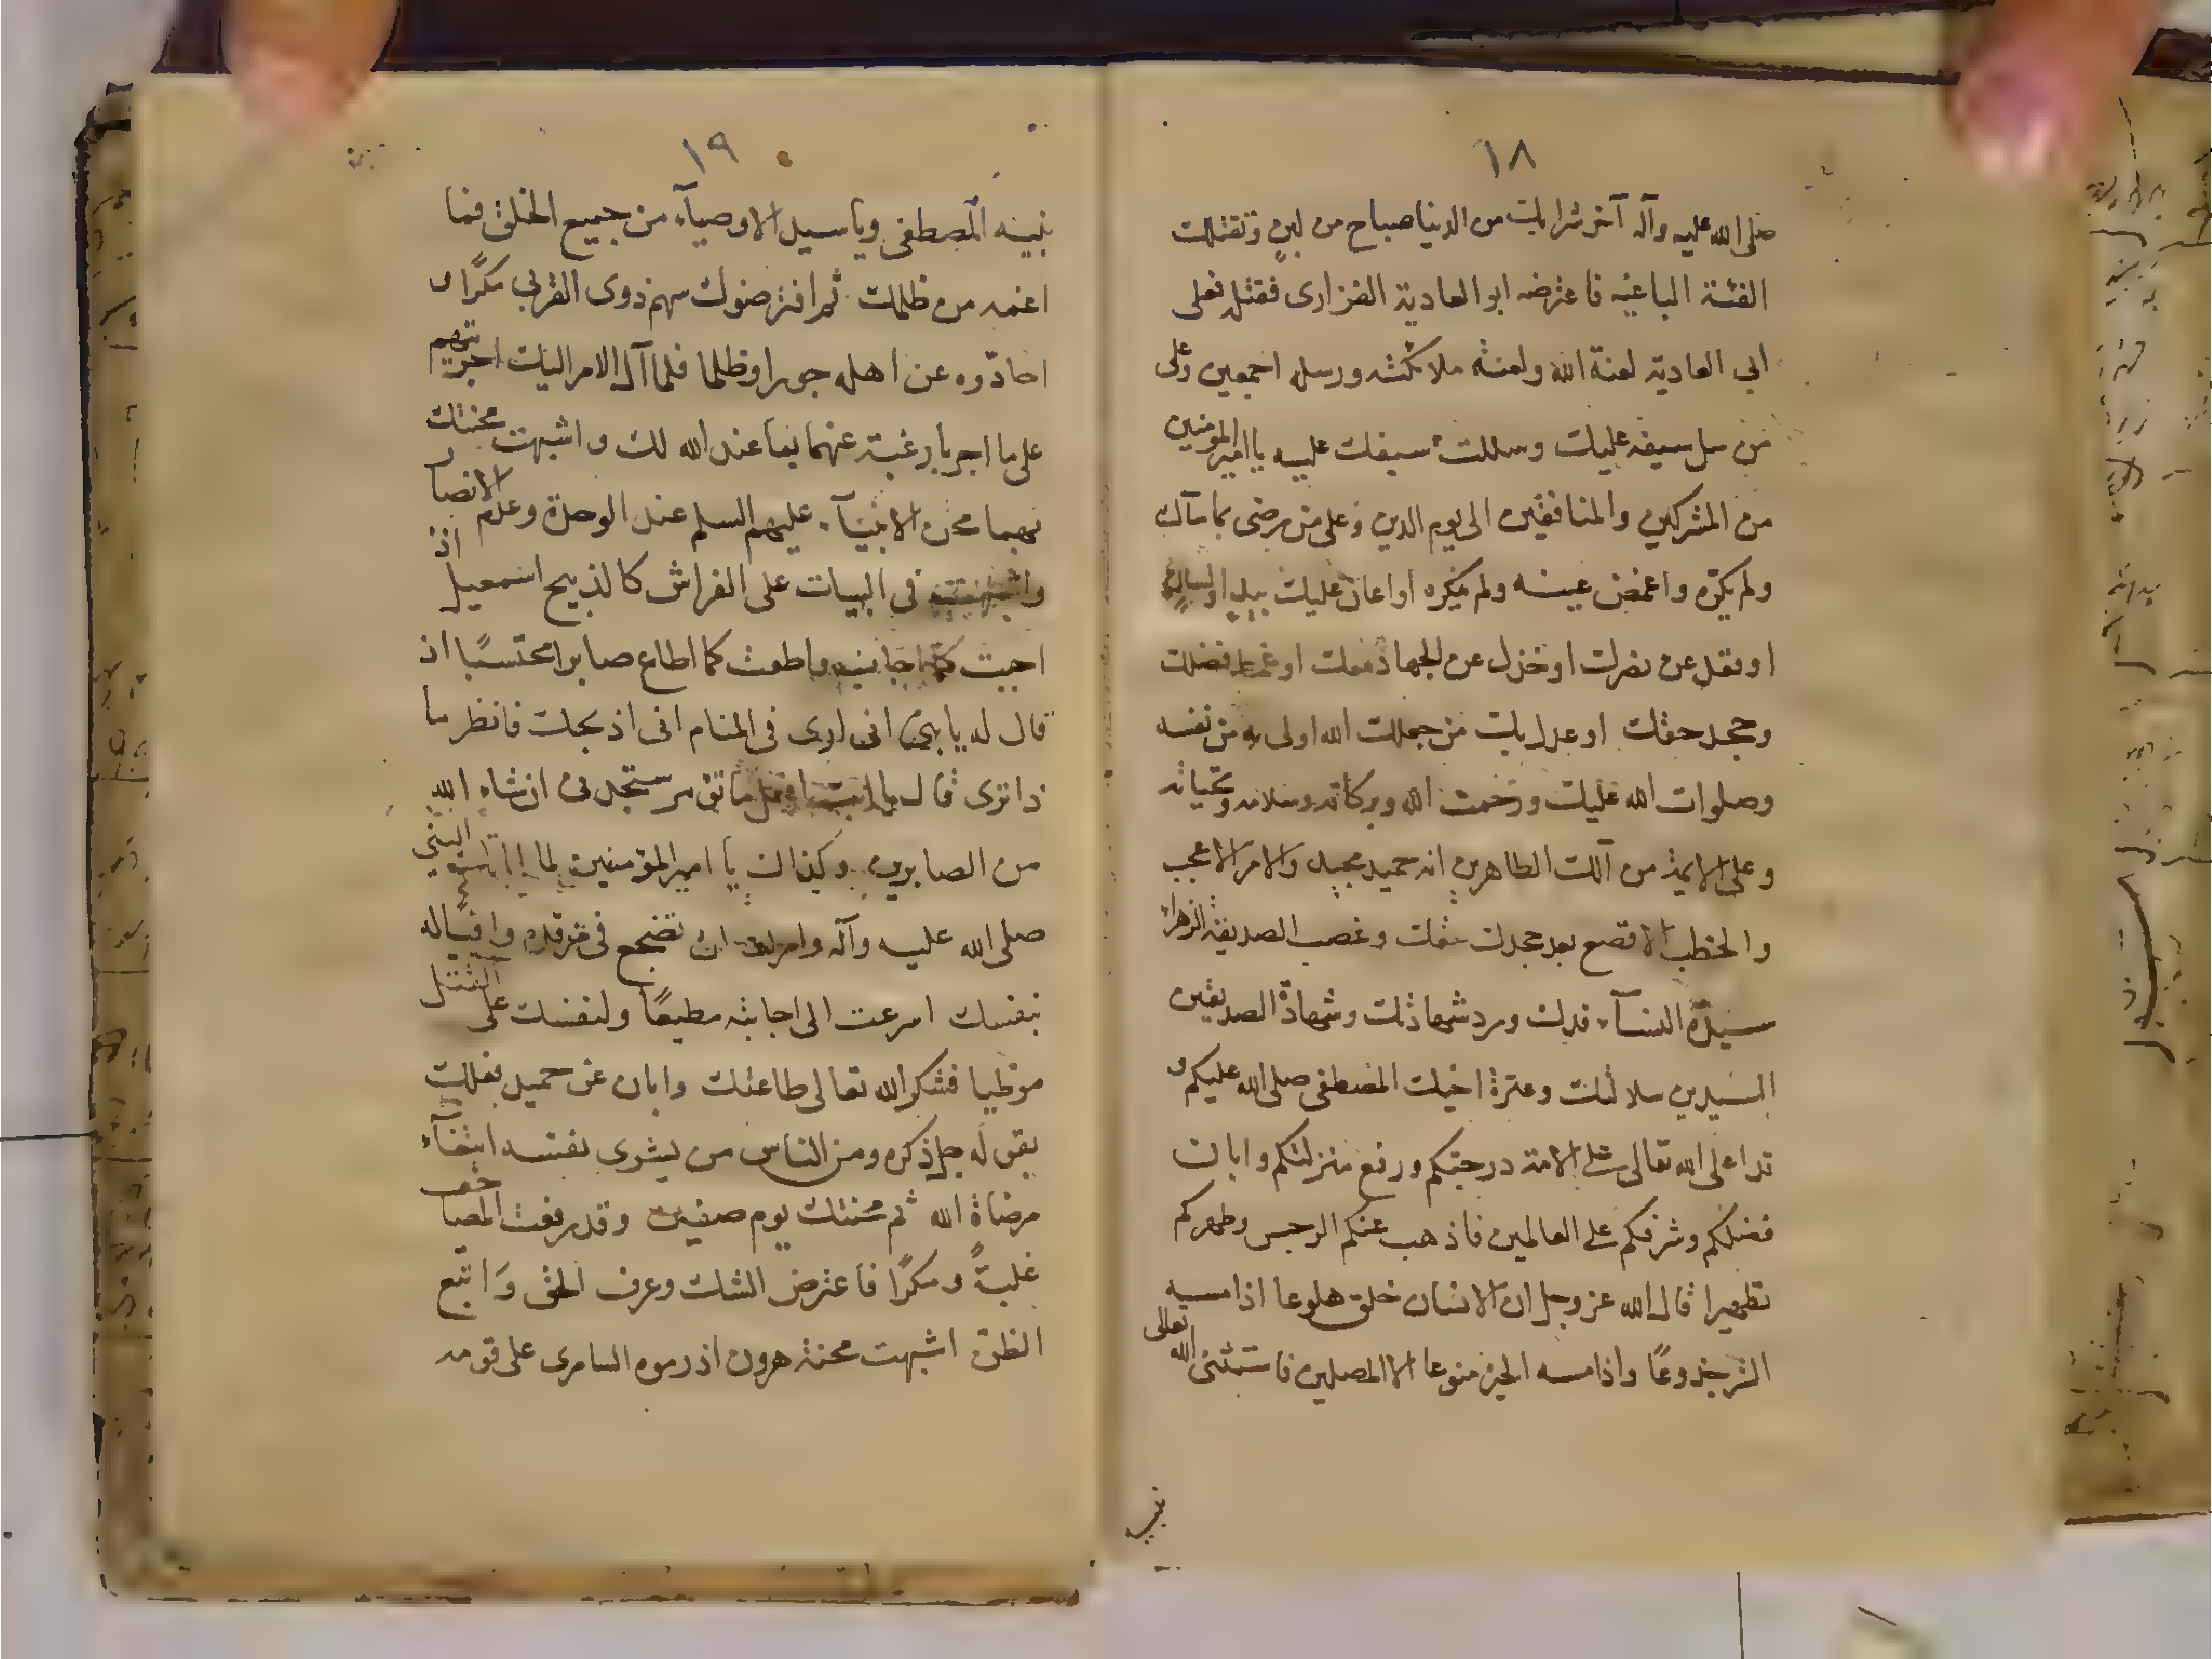 ١٨
صلى الله عليه وآله آخر شرابك من الدنيا صباح من لبن وتقتلك
الفئة الباغيه فاعترضه ابو العادية الفزارى فقتله فعلى
ابى العادية لعنة الله ولعنة ملائكته ورسله اجمعين وعلى
من سل سيفه عليك وسللت سيفك عليه يا امير المومنين
من المشركين والمنافقين الى يوم الدين وعلى من رضى بما ساك
ولم يكره واغمض عينه ولم ينكره او اعان عليك بيد او لسان
او قعد عن نصرك او خذل عن الجهاد معك او غمط فضلك
وجحد حقك او عدل بك من جعلك الله اولى به من نفسه
وصلوات الله عليك ورحمت الله وبركاته وسلامه وتحياته
وعلى الائمة من آلك الطاهرين انه حميد مجيد والامر الاعجب
والخطب الافضع بعد جحدك حقك وغصب الصديقة الزهراء
سيدة النسآء فدك ورد شهادتك وشهادة الصديقين
السيدين سلالتك وعترة اخيك المصطفى صلى الله عليكم و
قد اعلى الله تعالى على الامة درجتكم ورفع منزلتكم وابان
فضلكم وشرفكم على العالمين فاذهب عنكم الرجس وطهركم
تطهيرا قال الله عز وجل ان الانسان خلق هلوعا اذا مسه
الشر جزوعًا واذا مسه الخير منوعا الا المصلين فاستثنى الله تعالى
نبيه
١٩
نبيه المصطفى ويا سيد الاوصيآء من جميع الخلق فما
اعمه من ظلمك ثم افترضوك سهم ذوى القربى مكرًا و
احادّوه عن اهله جورا وظلما فلما آل الامر اليك اجريتهم
على ما اجريا رغبة عنهما بما عند الله لك و اشبهت محنتك
بهما محن الانبيآء عليهم السلم عند الوحدة وعدم الانصار
واشبهت فى البيات على الفراش كالذبيح اسمعيل اذ
اجبت كما اجاب واطعت كما اطاع صابرا محتسبًا اذ
قال له يا بنى انى ارى فى المنام انى اذبحك فانظر ما
ذا ترى قال يا ابت افعل ما تؤمر ستجدنى ان شاء الله
من الصابرين وكذلك يا امير المؤمنين لما النبي
صلى الله عليه وآله وامرك ان تضجع فى مرقده واقيًا له
بنفسك اسرعت الى اجابته مطيعًا ولنفسك على القتل
موطيا فشكر الله تعالى طاعتك وابان عن جميل فعلك
بقوله جل ذكره ومن الناس من يشرى نفسه ابتغآء
مرضاة الله ثم محنتك يوم صفين وقد رفعت المصاحف
غلبةً ومكرًا فاعترض الشك وعرف الحق وَاتبع
الظن اشبهت محنة هرون اذ رموه السامرى على قومه